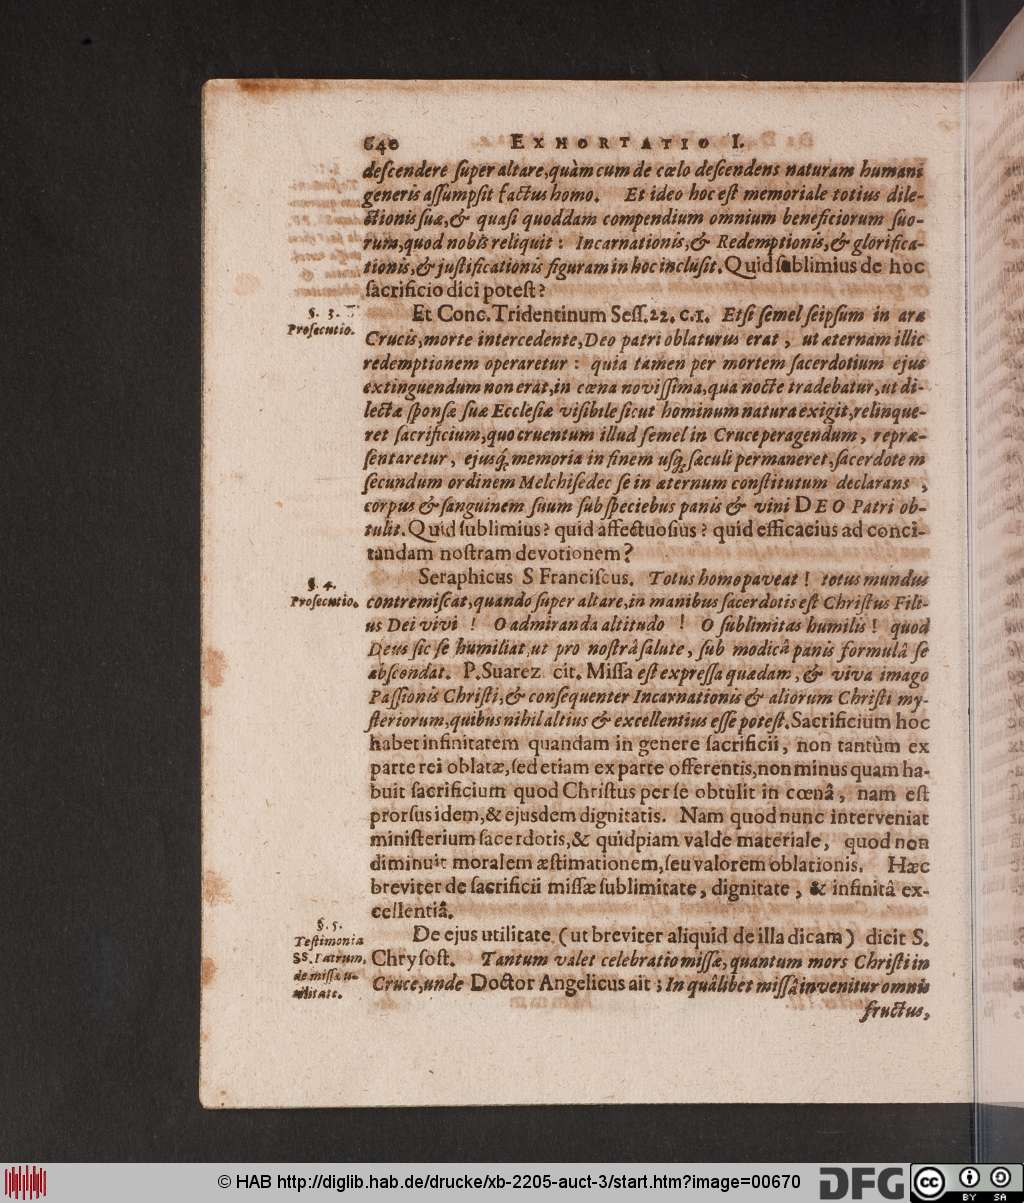 640 EXHORTATIO I.
descendere super altare, quàm cum de cœlo descendens naturam humani
generis assumpsit factus homo. Et ideo hoc est memoriale totius dile-
ctionis suæ, & quasi quoddam compendium omnium beneficiorum suo-
rum, quod nobis reliquit: Incarnationis, & Redemptionis, & glorifica-
tionis, & justificationis figuram in hoc inclusit. Quid sublimius de hoc
sacrificio dici potest?
§. 3.
Prosecutio.
Et Conc. Tridentinum Sess. 22. c. 1. Etsi semel seipsum in ara
Crucis, morte intercedente, Deo patri oblaturus erat, ut æternam illic
redemptionem operaretur: quia tamen per mortem sacerdotium ejus
extinguendum non erat, in cœna novissima, qua nocte tradebatur, ut di-
lectæ sponsæ suæ Ecclesiæ visibile sicut hominum natura exigit, relinque-
ret sacrificium, quo cruentum illud semel in Cruce peragendum, repræ-
sentaretur, ejusq́ memoria in finem usq; sæculi permaneret, sacerdotem
secundum ordinem Melchisedec se in æternum constitutum declarans,
corpus & sanguinem suum sub speciebus panis & vini DEO Patri ob-
tulit. Quid sublimius? quid affectuosius? quid efficacius ad conci-
tandam nostram devotionem?
§. 4.
Prosecutio.
Seraphicus S Franciscus. Totus homo paveat! totus mundus
contremiscat, quando super altare, in manibus sacerdotis est Christus Fili-
us Dei vivi! O admiranda altitudo! O sublimitas humilis! quod
Deus sic se humiliat, ut pro nostrâ salute, sub modicâ panis formulâ se
abscondat. P. Suarez cit. Missa est expressa quædam, & viva imago
Passionis Christi, & consequenter Incarnationis & aliorum Christi my-
steriorum, quibus nihil altius & excellentius esse potest. Sacrificium hoc
habet infinitatem quandam in genere sacrificii, non tantùm ex
parte rei oblatæ, sed etiam ex parte offerentis, non minus quam ha-
buit sacrificium quod Christus per se obtulit in cœnâ, nam est
prorsus idem, & ejusdem dignitatis. Nam quod nunc interveniat
ministerium sacerdotis, & quidpiam valde materiale, quod non
diminuit moralem æstimationem, seu valorem oblationis. Hæc
breviter de sacrificii missæ sublimitate, dignitate, & infinitâ ex-
cellentiâ.
§. 5.
Testimonia
SS. Patrum,
de missæ u-
tilitate.
De ejus utilitate (ut breviter aliquid de illa dicam) dicit S.
Chrysost. Tantum valet celebratio missæ, quantum mors Christi in
Cruce, unde Doctor Angelicus ait; In quâlibet missâ invenitur omnis
fructus,
© HAB http://diglib.hab.de/drucke/xb-2205-auct-3/start.htm?image=00670
DFG
cc
BY SA